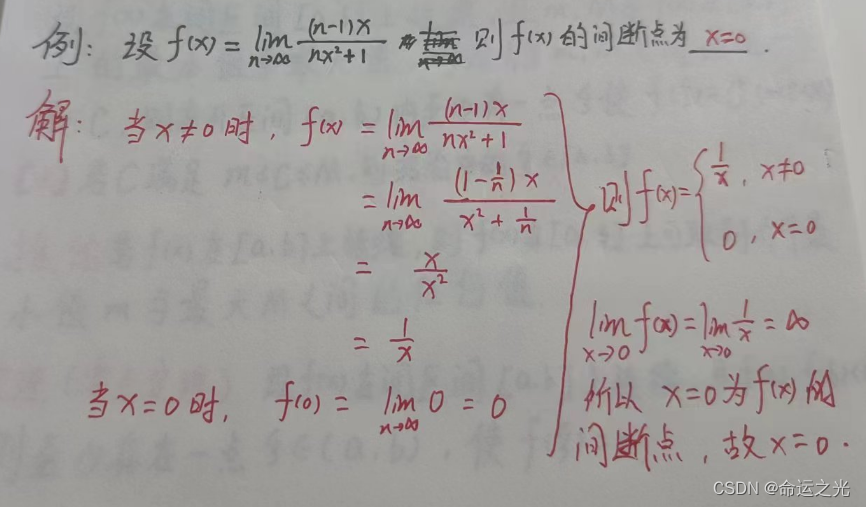 例: 设 f(x) = lim n→∞ (n-1)x / nx²+1 则 f(x) 的间断点为 x=0 .
解: 当 x≠0 时, f(x) = lim n→∞ (n-1)x / nx²+1
= lim n→∞ (1-1/n)x / x²+1/n
= x/x²
= 1/x
当 x=0 时, f(0) = lim n→∞ 0 = 0
则 f(x) = { 1/x , x≠0
0 , x=0
lim x→0 f(x) = lim x→0 1/x = ∞
所以 x=0 为 f(x) 的
间断点, 故 x=0 .
CSDN @命运之光